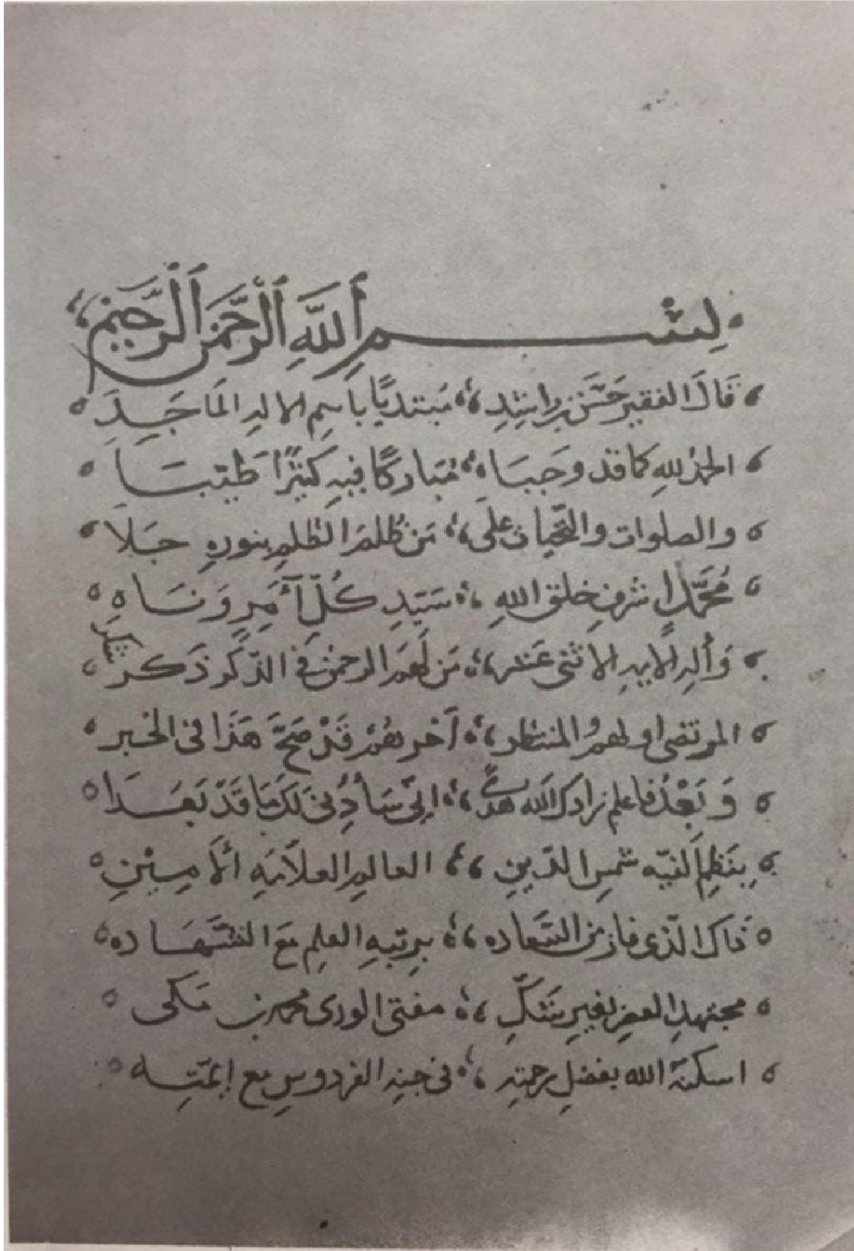 بسم الله الرحمن الرحيم
قال الفقير حسن بن راشد مبتديًا باسم الاله الماجد
الحمد لله كما قد وجبا مباركًا فيه كثيرًا طيبا
والصلوات والتحيات على من ظلم الظلم بنوره جلا
محمد اشرف خلق الله سيد كل آمر وناه
وآله الاثنى عشر من لهم الرحمن في الذكر ذكر
المرتضى اولهم والمنتظر آخرهم قد صح هذا في الخبر
وبعد فاعلم زادك الله هدى اني سأدني لك ما قد بعدا
بنظم الفيه شمس الدين العالم العلامه الامين
ذاك الذى فاز من السعاده برتبه العلم مع الشهاده
مجتهد العصر بغير شك مفتى الورى محمد بن مكى
اسكنه الله بفضل رحمته في جنه الفردوس مع ايمته